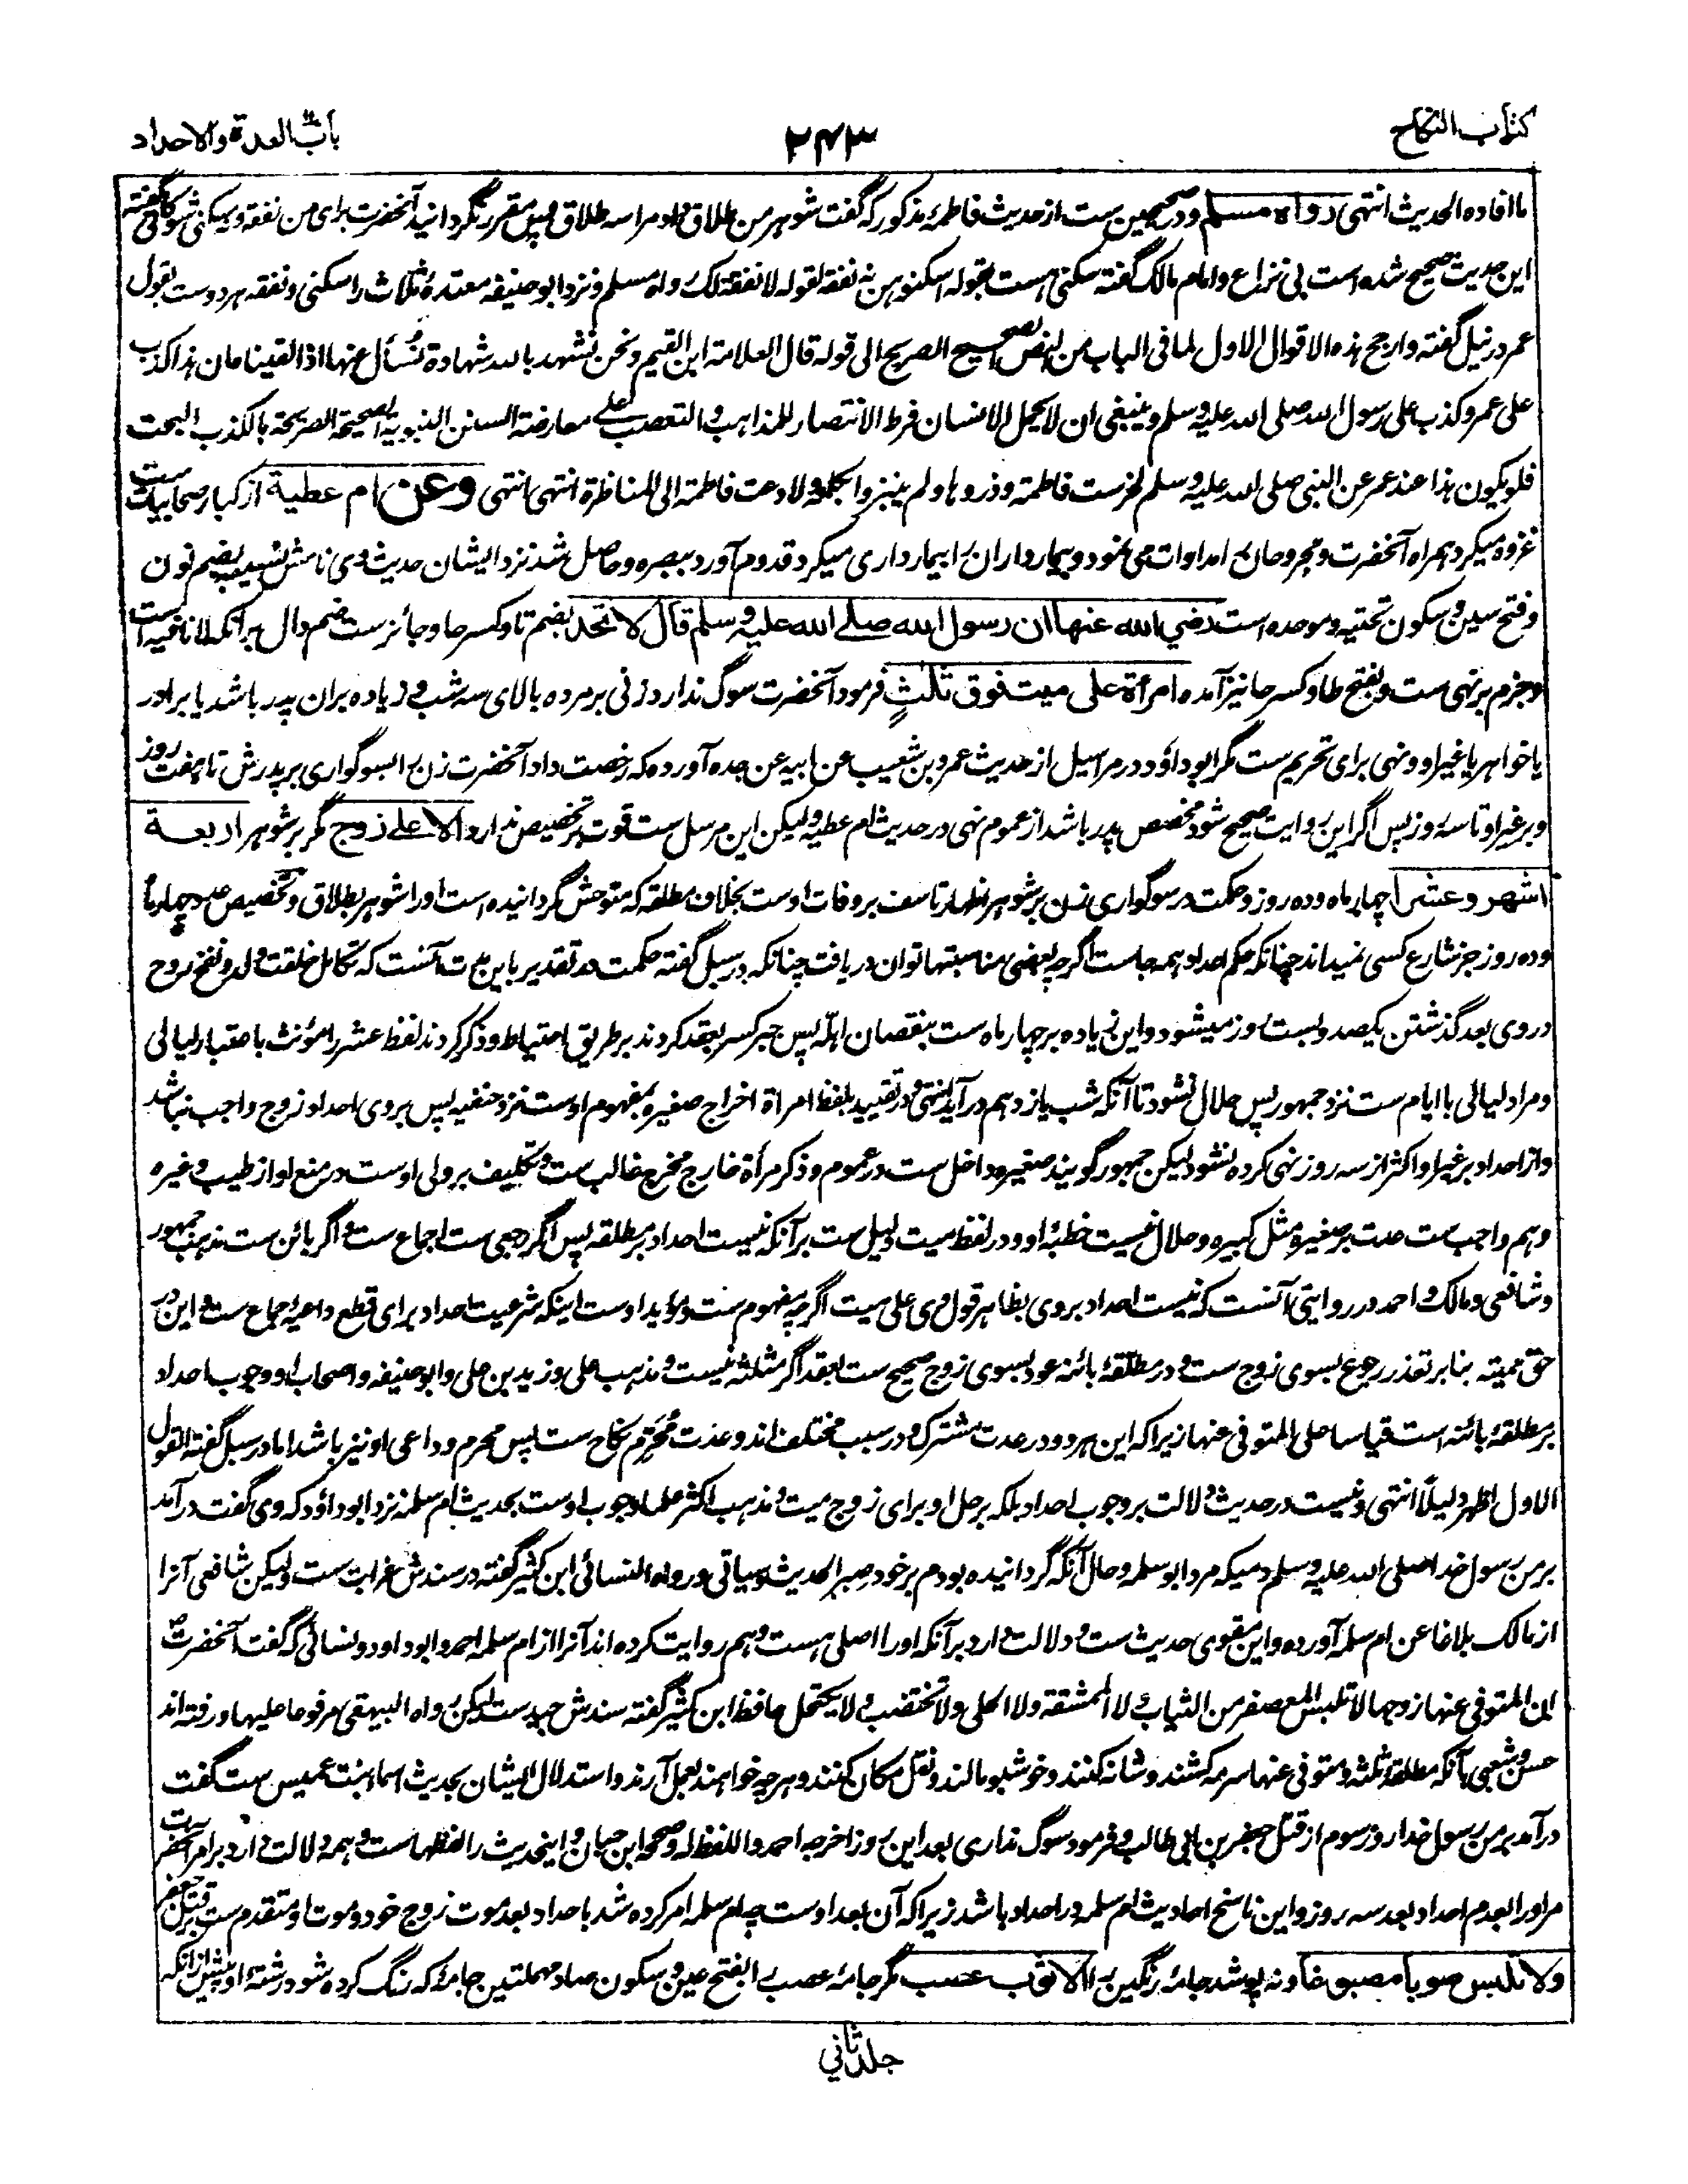 کتاب النکاح
۲۴۳
باب العدة والاحداد
ما افاده الحدیث انتهی رواه مسلم و در صحیحین ست از حدیث فاطمهٔ مذکور که گفت شوهر من طلاق داد مرا سه طلاق پس مقرر نگردانید آنحضرت برای من نفقه و نه سکنی شوکانی گفته
این حدیث صحیح شده است بی نزاع و امام مالک گفته سکنی هست بقوله اسکنوهن نه نفقه لقوله لا نفقة لک رواه مسلم و نزد ابو حنیفه معتدهٔ ثلاث را سکنی و نفقه هر دوست بقول
عمر در نیل گفته و ارجح هذه الاقوال الاول لما فی الباب من النص الصحیح الصریح الی قوله قال العلامة ابن القیم و نحن نشهد بالله شهادة نسأل عنها اذا لقیناه ان هذا کذب
علی عمر و کذب علی رسول الله صلی الله علیه وسلم و ینبغی ان لا یحمل الانسان فرط الانتصار للمذاهب و التعصب لها علی معارضة السنن النبویة الصحیحة الصریحة بالکذب البحت
فلو یکون هذا عند عمر عن النبی صلی الله علیه وسلم لخرست فاطمة و ذووها و لم ینبزوا بکلمة ولا دعت فاطمة الی المناظرة انتهی انتهی وعن ام عطیة از کبار صحابیات ست
غزوه میکرد همراه آنحضرت و مجروحان را مداوات می نمود و بیمارداران را بیمارداری میکرد قدوم آورد ببصره و حاصل شد نزد ایشان حدیث وی نامش نسیبه بضم نون
و فتح سین و سکون تحتیه و موحده است رضی الله عنها ان رسول الله صلے الله علیه وسلم قال لا تحد بضم تا و کسر حا و جائز ست ضم دال برآنکه لا نافیه است
و جزم بر نهی ست و بفتح طا و کسر حا نیز آمده امرأة علی میت فوق ثلثٍ فرمود آنحضرت سوگ ندارد زنی بر مرده بالای سه شب و زیاده بران پدر باشد یا برادر
یا خواهر یا غیر او و نهی برای تحریم ست مگر ابوداؤد در مراسیل از حدیث عمرو بن شعیب عن ابیه عن جده آورده که رخصت داد آنحضرت زن را بسوگواری بر پدرش تا هفت روز
و بر غیر او تا سه روز پس اگر این روایت صحیح شود مخصص پدر باشد از عموم نهی در حدیث ام عطیه ولیکن این مرسل ست قوت بر تخصیص ندارد الا علے زوج مگر بر شوهر اربعة
اشهر و عشرا چهار ماه و ده روز و حکمت در سوگواری زن بر شوهر اظهار تاسف بر وفات اوست بخلاف مطلقه که متوحش گردانیده است او را شوهر بطلاق و تخصیص عدد چهار ماه
و ده روز جز شارع کسی نمیداند چنانکه حکم اعداد همه جاست اگرچه بعضی مناسبتها توان دریافت چنانکه در سبل گفته حکمت در تقدیر باین مدت آنست که تکامل خلقت ولد و نفخ روح
در وی بعد گذشتن یکصد و بست روز میشود و این زیاده بر چهار ماه ست بنقصان اهلّه پس جبر کسر بعقد کردند بر طریق احتیاط و ذکر کردند لفظ عشر را مؤنث باعتبار لیالی
و مراد لیالی با ایام ست نزد جمهور پس حلال نشود تا آنکه شب یازدهم درآید انتهی و در تقیید بلفظ امرأة اخراج صغیره بمفهوم اوست نزد حنفیه پس بروی احداد زوج واجب نباشد
و از احداد بر غیر او اکثر از سه روز نهی کرده نشود لیکن جمهور گویند صغیره داخل ست در عموم و ذکر مرأة خارج مخرج غالب ست و تکلیف بر ولی اوست در منع او از طیب و غیره
و هم واجب ست عدت بر صغیره مثل کبیره و حلال نیست خطبهٔ او و در لفظ میت دلیل ست برآنکه نیست احداد بر مطلقه پس اگر رجعی ست اجماع ست و اگر بائن ست مذهب جمهور
و شافعی و مالک و احمد در روایتی آنست که نیست احداد بروی بظاهر قول وی علی میت اگرچه مفهوم ست و مؤید اوست اینکه شرعیت احداد برای قطع داعیهٔ جماع ست و این در
حق میته بنابر تعذر رجوع بسوی زوج ست و در مطلقهٔ بائنه عود بسوی زوج صحیح ست بعقد اگر مثلثه نیست و مذهب علی و زید بن علی و ابوحنیفه و اصحاب او وجوب احداد
بر مطلقهٔ بائنه است قیاسا علی المتوفی عنها زیرا که این هر دو در عدت مشترک و در سبب مختلف اند و عدت مُحَرِّم نکاح ست پس محرم دواعی او نیز باشد اما در سبل گفته القول
الاول اظهر دلیلًا انتهی و نیست در حدیث دلالت بر وجوب احداد بلکه بر حل او برای زوج میت و مذهب اکثر علما وجوب اوست بحدیث ام سلمه نزد ابوداؤد که وی گفت درآمد
بر من رسول خدا صلی الله علیه وسلم دمیکه مرد ابوسلمه و حال آنکه گردانیده بودم بر خود صبر الحدیث و سیاتی و رواه النسائی ابن کثیر گفته در سندش غرابت ست ولیکن شافعی آنرا
از مالک بلاغا عن ام سلمه آورده و این مقوی حدیث ست و دلالت دارد برآنکه او را اصلی هست و هم روایت کرده اند آنرا از ام سلمه احمد و ابوداود و نسائی که گفت آنحضرت
ان المتوفی عنها زوجها لا تلبس المعصفر من الثیاب ولا الممشقة ولا الحلی ولا تختضب ولا تکتحل حافظ ابن کثیر گفته سندش جید ست لیکن رواه البیهقی مرفوعا علیها و رفته اند
حسن و شعبی بآنکه مطلقهٔ ثلثه و متوفی عنها سرمه کشند و شانه کنند و خوشبو مالند و نقل مکان کنند و هرچه خواهند بعمل آرند و استدلال ایشان بحدیث اسماء بنت عمیس ست گفت
درآمد بر من رسول خدا روز سوم از قتل جعفر بن ابی طالب و فرمود سوگ نداری بعد این روز اخرجه احمد و اللفظ له و صححه ابن حبان و این حدیث را لفظهاست و همه دلالت دارد بر امر آنحضرت
مر او را بعدم احداد بعد سه روز و این ناسخ احادیث ام سلمه در احداد باشد زیرا که آن بعد اوست چه ام سلمه امر کرده شد باحداد بعد موت زوج خود و موت او متقدم ست بر قتل جعفر
ولا تلبس ثوبا مصبوغا و نه پوشد جامهٔ رنگین را الا ثوب عصب مگر جامهٔ عصب را بفتح عین و سکون صاد مهملتین جامهٔ که رنگ کرده شود رشتهٔ او پیش ازانکه
جلد ثانی